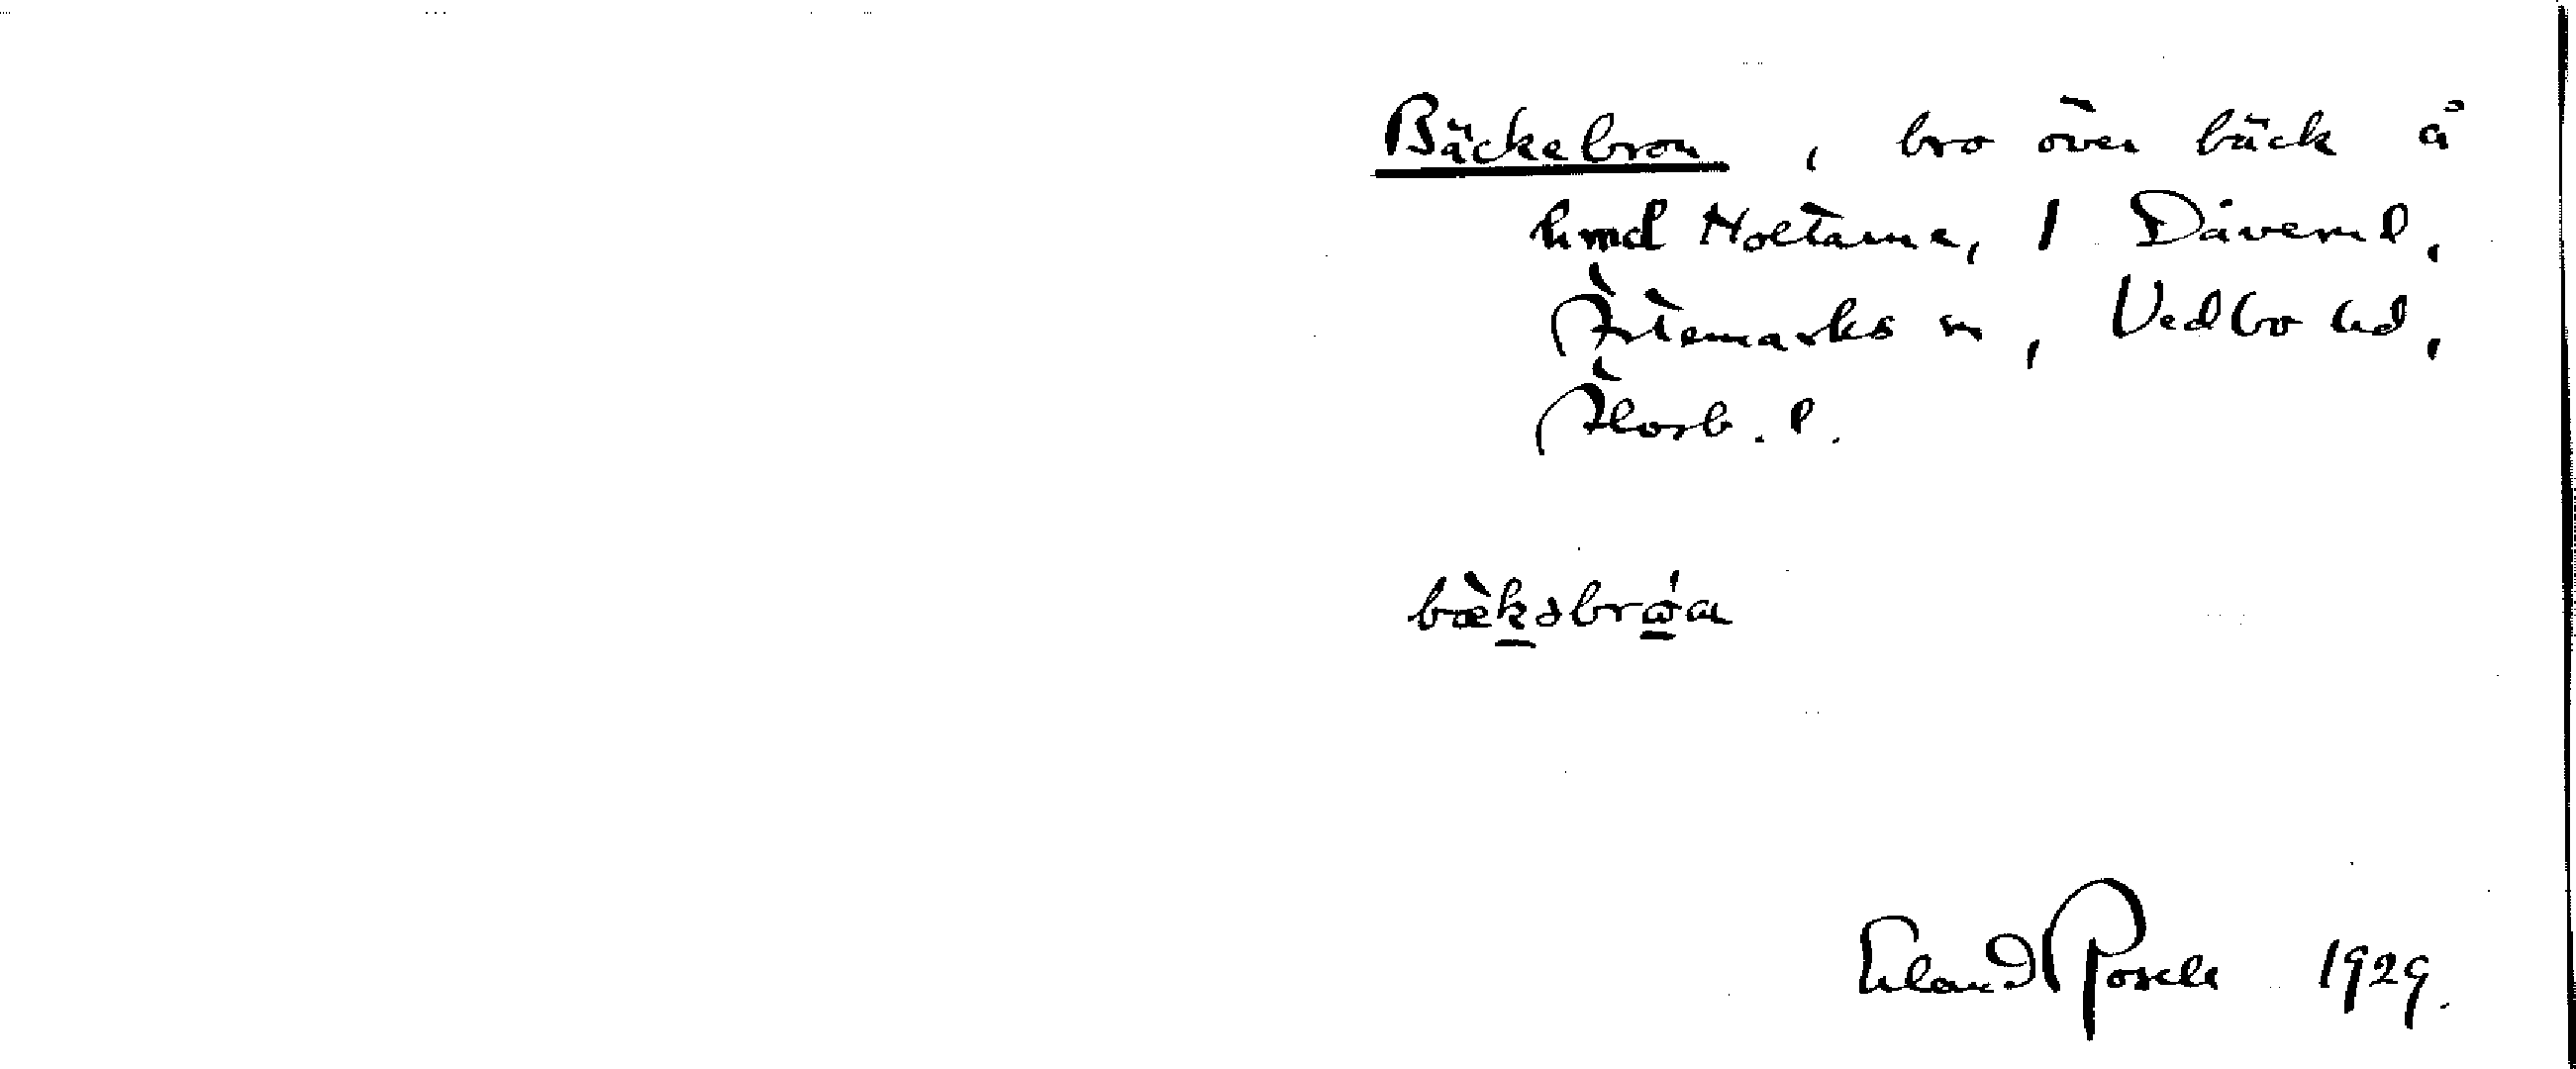 Bäckebron, bro över bäck å
hmd Holtarna, 1 Däverud,
Ärtemarks sn, Vedbo hd,
Älvsb. l.
bæ̀kəbrώ̲a
Erland Rosell 1929.